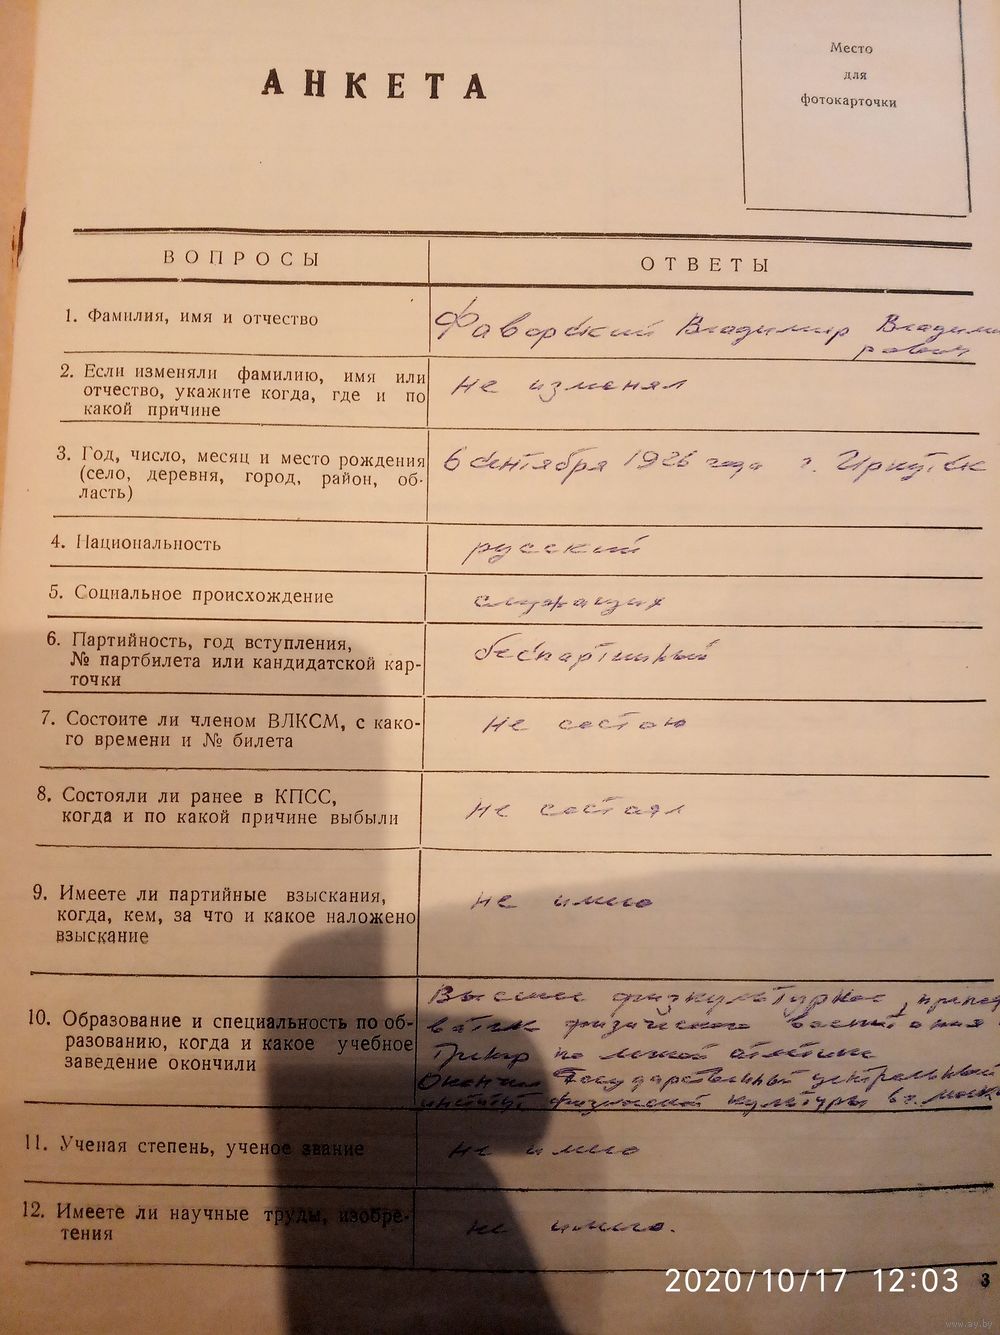 Место
для
фотокарточки
АНКЕТА
ВОПРОСЫ
ОТВЕТЫ
1. Фамилия, имя и отчество
Фаворский Владимир Владими
рович
2. Если изменяли фамилию, имя или
отчество, укажите когда, где и по
какой причине
не изменял
3. Год, число, месяц и место рождения
(село, деревня, город, район, об-
ласть)
6 сентября 1926 года г. Иркутск
4. Национальность
русский
5. Социальное происхождение
служащих
6. Партийность, год вступления,
№ партбилета или кандидатской кар-
точки
беспартийный
7. Состоите ли членом ВЛКСМ, с како-
го времени и № билета
не состою
8. Состояли ли ранее в КПСС,
когда и по какой причине выбыли
не состоял
9. Имеете ли партийные взыскания,
когда, кем, за что и какое наложено
взыскание
не имею
10. Образование и специальность по об-
разованию, когда и какое учебное
заведение окончили
Высшее физкультурное, препод
ватель физического воспитания
Тренер по легкой атлетике
Окончил Государственный центральный
институт физической культуры в г. Моск
11. Ученая степень, ученое звание
не имею
12. Имеете ли научные труды, изобре-
тения
не имею.
2020/10/17 12:03
3
www.ay.by